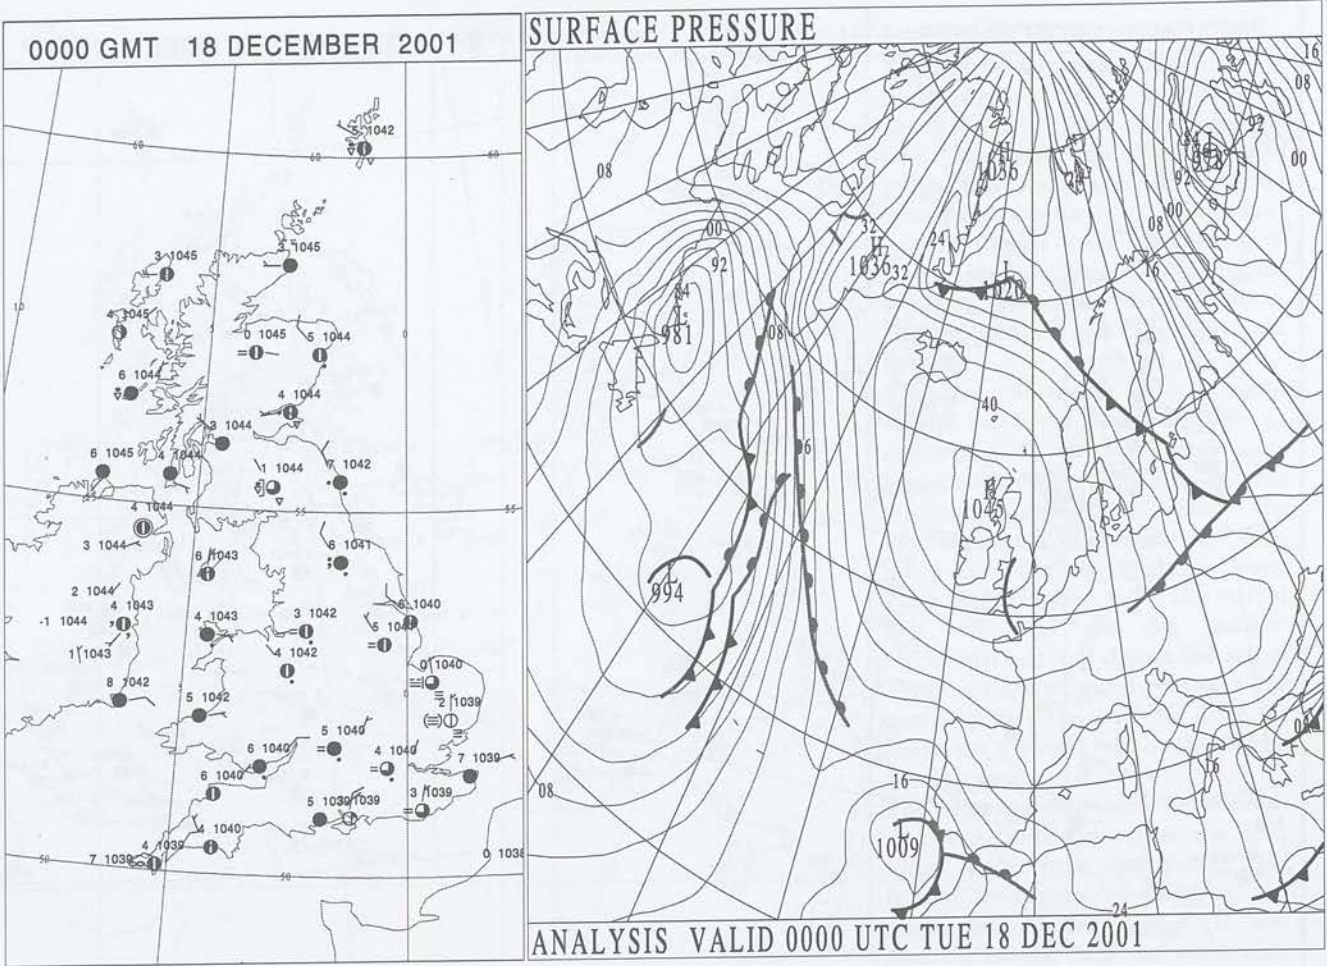 0000 GMT 18 DECEMBER 2001
5 1042
60
60
60
3 1045
3 1045
10
4 1045
5
0 1045
5 1044
0
6 1044
4 1044
3 1044
6 1045
4 1044
1 1044
7 1042
4 1044
55
55
3 1044
6 1043
6 1041
2 1044
4 1043
-1 1044
4 1043
3 1042
6 1040
1 1043
4 1042
0 1040
8 1042
5
5 1042
0
2 1039
5 1040
6 1040
4 1040
7 1039
6 1040
5 1039
3 1039
4 1040
50
7 1039
4 1039
0 1038
50
SURFACE PRESSURE
16
08
92
84
L
978
00
92
H
1036
24
08
00
08
32
00
H
1036
32
24
16
92
L
1020
84
L
981
08
40
H
1045
L
994
08
16
16
L
1009
24
ANALYSIS VALID 0000 UTC TUE 18 DEC 2001